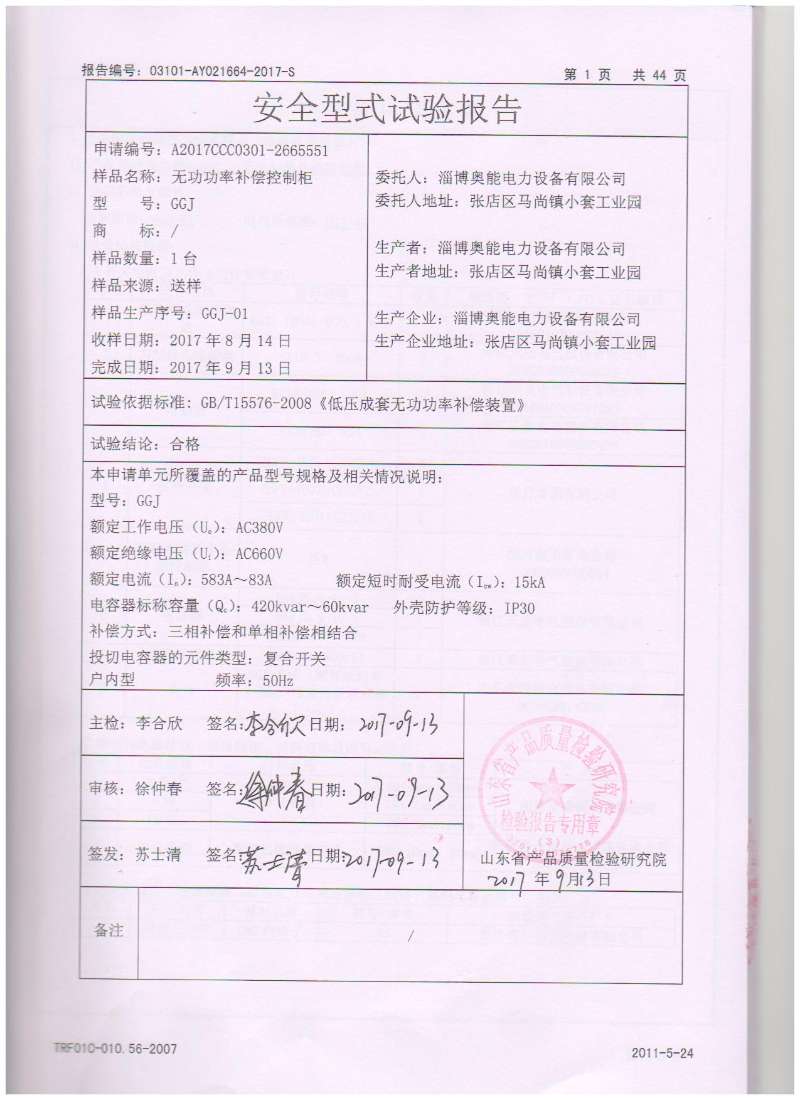 报告编号：03101-AY021664-2017-S
第 1 页 共 44 页
安全型式试验报告
申请编号：A2017CCC0301-2665551
样品名称：无功功率补偿控制柜
型 号：GGJ
商 标：/
样品数量：1台
样品来源：送样
样品生产序号：GGJ-01
收样日期：2017年8月14日
完成日期：2017年9月13日
委托人：淄博奥能电力设备有限公司
委托人地址：张店区马尚镇小套工业园
生产者：淄博奥能电力设备有限公司
生产者地址：张店区马尚镇小套工业园
生产企业：淄博奥能电力设备有限公司
生产企业地址：张店区马尚镇小套工业园
试验依据标准：GB/T15576-2008《低压成套无功功率补偿装置》
试验结论：合格
本申请单元所覆盖的产品型号规格及相关情况说明：
型号：GGJ
额定工作电压（Ue）：AC380V
额定绝缘电压（Ui）：AC660V
额定电流（In）：583A～83A 额定短时耐受电流（Icw）：15kA
电容器标称容量（Qn）：420kvar～60kvar 外壳防护等级：IP30
补偿方式：三相补偿和单相补偿相结合
投切电容器的元件类型：复合开关
户内型 频率：50Hz
主检：李合欣 签名：李合欣 日期：2017-09-13
审核：徐仲春 签名：徐仲春 日期：2017-09-13
签发：苏士清 签名：苏士清 日期：2017-09-13
山东省产品质量检验研究院
检验报告专用章
(3)
山东省产品质量检验研究院
2017年9月13日
备注
/
TRF01C-010.56-2007
2011-5-24